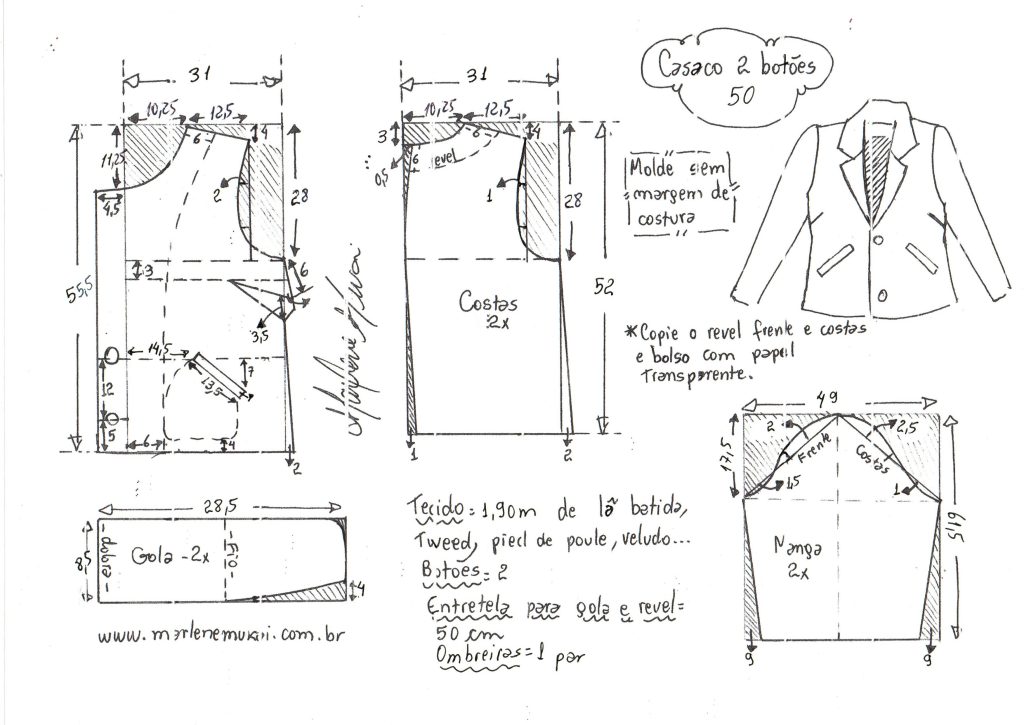 Casaco 2 botões
50
31
10,25
12,5
4
6
11,25
2
28
4,5
55,5
3
6
3,5
14,5
13,5
7
12
5
6
4
2
31
10,25
12,5
3
4
6
6
revel
0,5
1
28
52
Costas
2x
1
2
Molde sem
margem de
costura
*Copie o revel frente e costas
e bolso com papel
Transparente.
49
2
2,5
17,5
Frente
Costas
1,5
1
61,5
Manga
2x
9
9
28,5
8,5
dobra
Gola - 2x
Fio
4
www.marlenemukai.com.br
Tecido = 1,90m de lã batida,
Tweed, pied de poule, veludo...
Botões = 2
Entretela para gola e revel =
50 cm
Ombreiras = 1 par